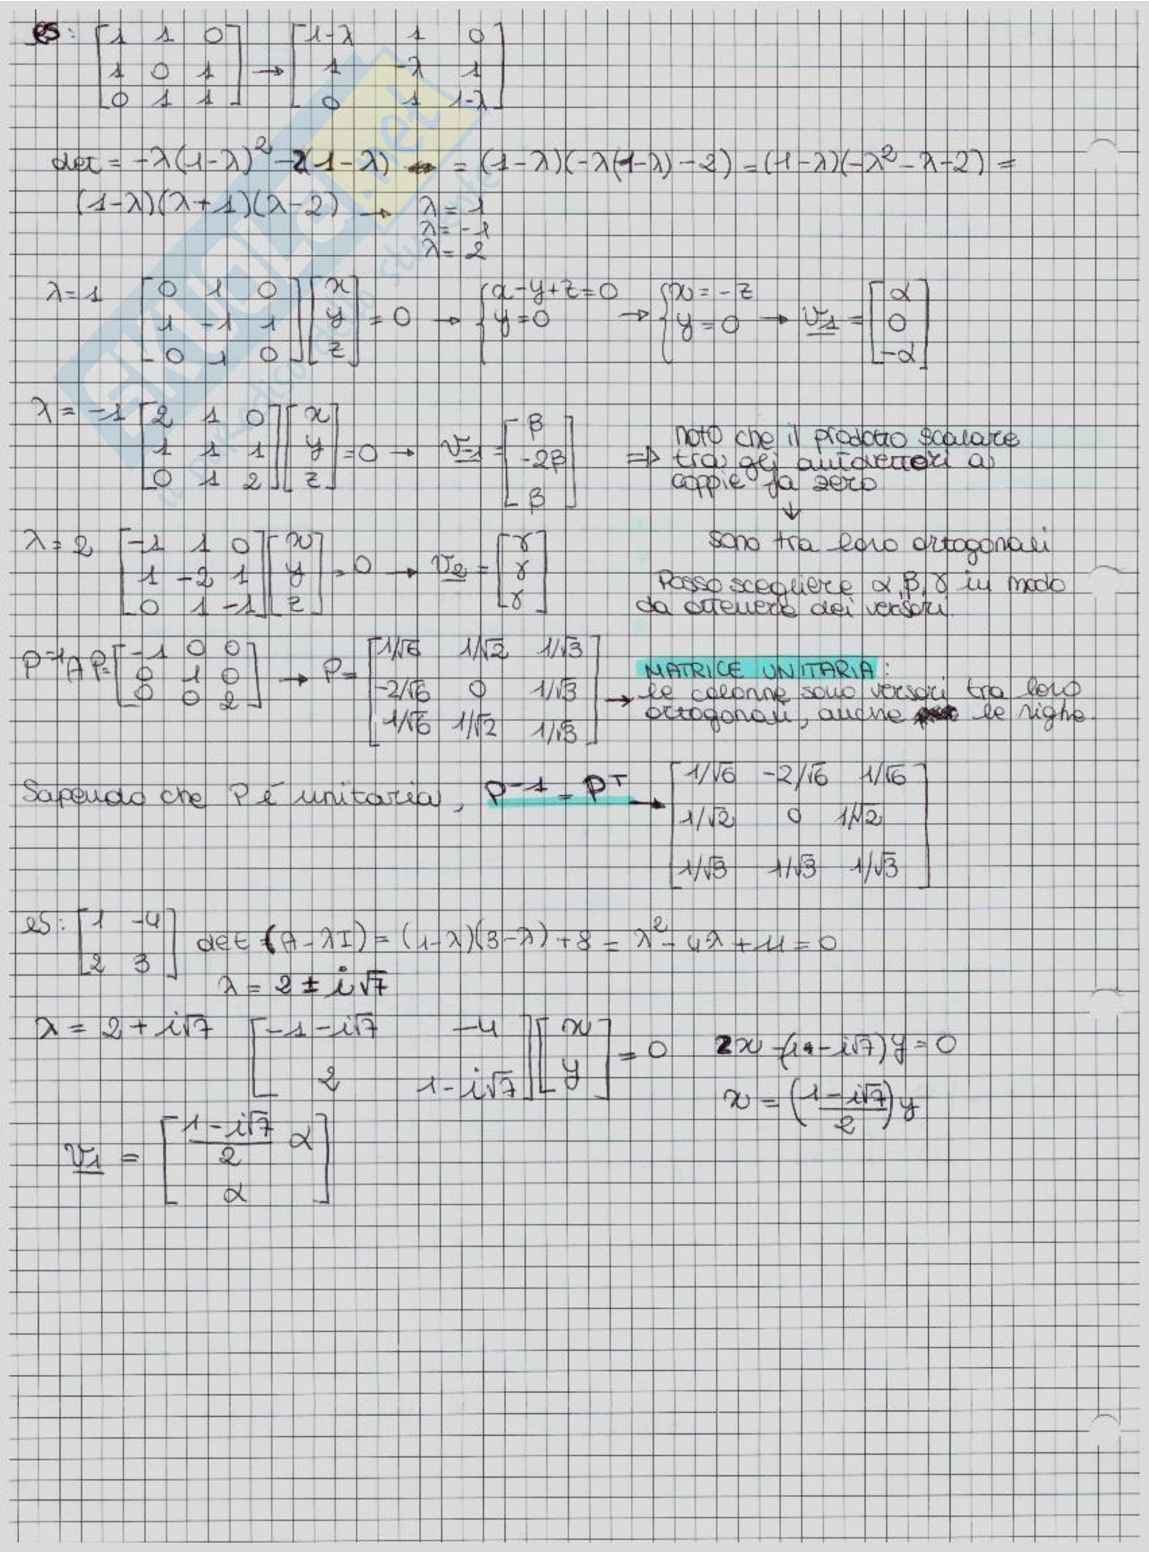 es: [1 1 0; 1 0 1; 0 1 1] → [1-λ 1 0; 1 -λ 1; 0 1 1-λ]
det = -λ(1-λ)² - 2(1-λ) = (1-λ)(-λ(1-λ)-2) = (1-λ)(-λ²-λ-2) =
(1-λ)(λ+1)(λ-2) → λ = 1
λ = -1
λ = 2
λ=1 [0 1 0; 1 -1 1; 0 1 0][x; y; z] = 0 → {x-y+z=0; y=0 → {x=-z; y=0 → v1 = [α; 0; -α]
λ = -1 [2 1 0; 1 1 1; 0 1 2][x; y; z] = 0 → v-1 = [β; -2β; β] ⇒ noto che il prodotto scalare
tra gli autovettori a
coppie fa zero
↓
λ = 2 [-1 1 0; 1 -2 1; 0 1 -1][x; y; z] = 0 → v2 = [γ; γ; γ] sono tra loro ortogonali
Posso scegliere α, β, γ in modo
da ottenere dei versori.
P⁻¹AP = [-1 0 0; 0 1 0; 0 0 2] → P = [1/√6 1/√2 1/√3; -2/√6 0 1/√3; 1/√6 1/√2 1/√3] → MATRICE UNITARIA:
le colonne sono versori tra loro
ortogonali, anche le righe
Sapendo che P è unitaria, P⁻¹ = Pᵀ → [1/√6 -2/√6 1/√6; 1/√2 0 1/√2; 1/√3 1/√3 1/√3]
es: [1 -4; 2 3] det (A-λI) = (1-λ)(3-λ)+8 = λ²-4λ+11 = 0
λ = 2 ± i√7
λ = 2+i√7 [-1-i√7 -4; 2 1-i√7][x; y] = 0 2x-(1-i√7)y=0
x = (1-i√7/2)y
v1 = [1-i√7/2 α; α]